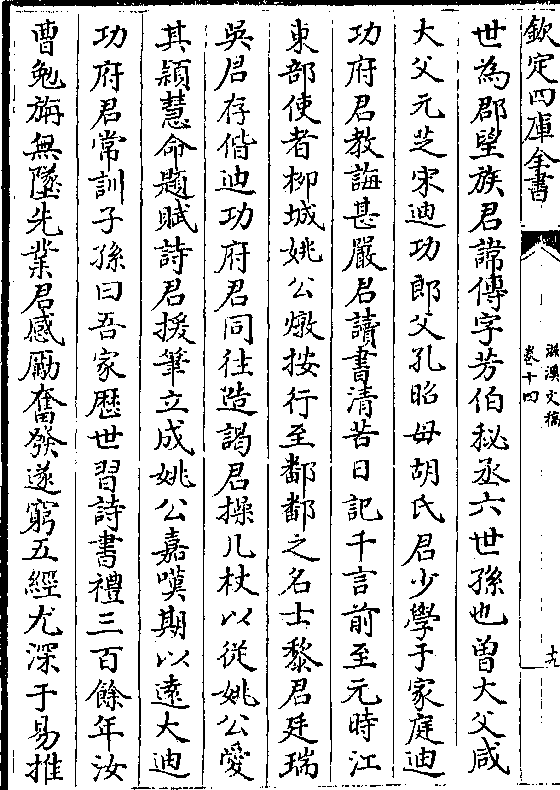 欽定四庫全書
卷十四
十九
世為郡望族君諱傳字芳伯秘丞六世孫也曾大父咸
大父元芝宋迪功郎父孔昭母胡氏君少學于家庭迪
功府君教誨甚嚴君讀書清苦日記千言前至元時江
東部使者柳城姚公燉按行至鄱鄱之名士黎君廷瑞
吳君存偕迪功府君同往造謁君操几杖以從姚公愛
其頴慧命題賦詩君援筆立成姚公嘉嘆期以遠大迪
功府君常訓子孫曰吾家歴世習詩書禮三百餘年汝
曹勉旃無墜先業君感厲奮發遂窮五經尤深于易推